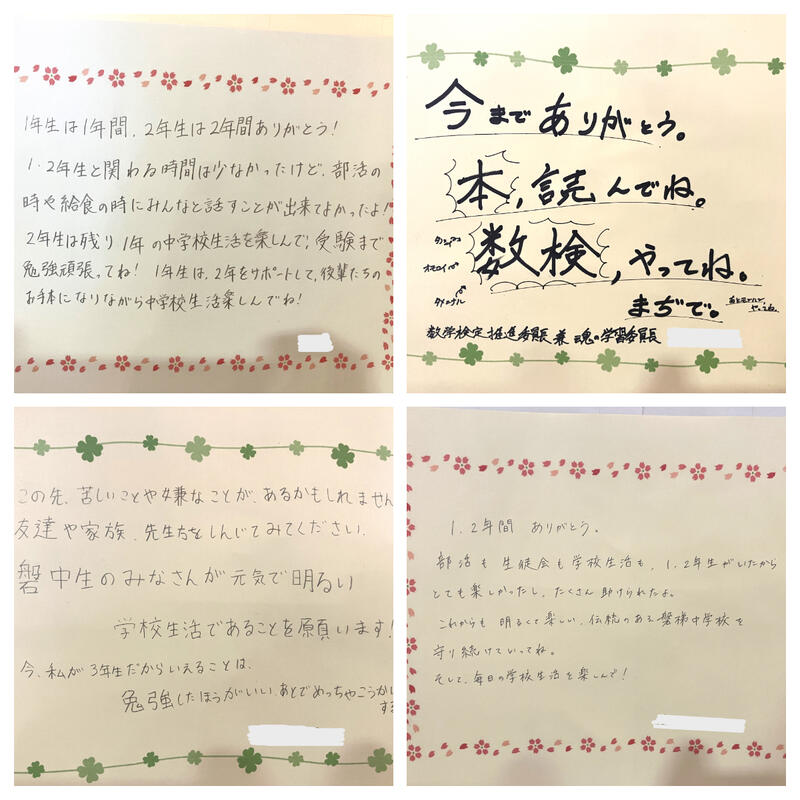 1年生は1年間、2年生は2年間ありがとう！
1、2年生と関わる時間は少なかったけど、部活の
時や給食の時にみんなと話すことが出来てよかったよ！
2年生は残り1年の中学校生活を楽しんで、受験まで
勉強頑張ってね！ 1年生は、2年をサポートして、後輩たちの
お手本になりながら中学校生活楽しんでね！
今までありがとう。
本，読んでね。
数検，やってね。
オモロイ
まぢで。
数学検定推進委員長 兼 魂の学習委員長
この先、苦しいことや嫌なことが、あるかもしれません
友達や家族、先生方をしんじてみてください。
磐中生のみなさんが元気で明るい
学校生活であることを願います！
今、私が3年生だからいえることは、
勉強したほうがいい、あとでめっちゃこうかい
する
1、2年間 ありがとう。
部活も生徒会も学校生活も、1、2年生がいたから
とても楽しかったし、たくさん助けられたよ。
これからも 明るくて楽しい、伝統のある磐梯中学校を
守り続けていってね。
そして、毎日の学校生活を楽しんで！